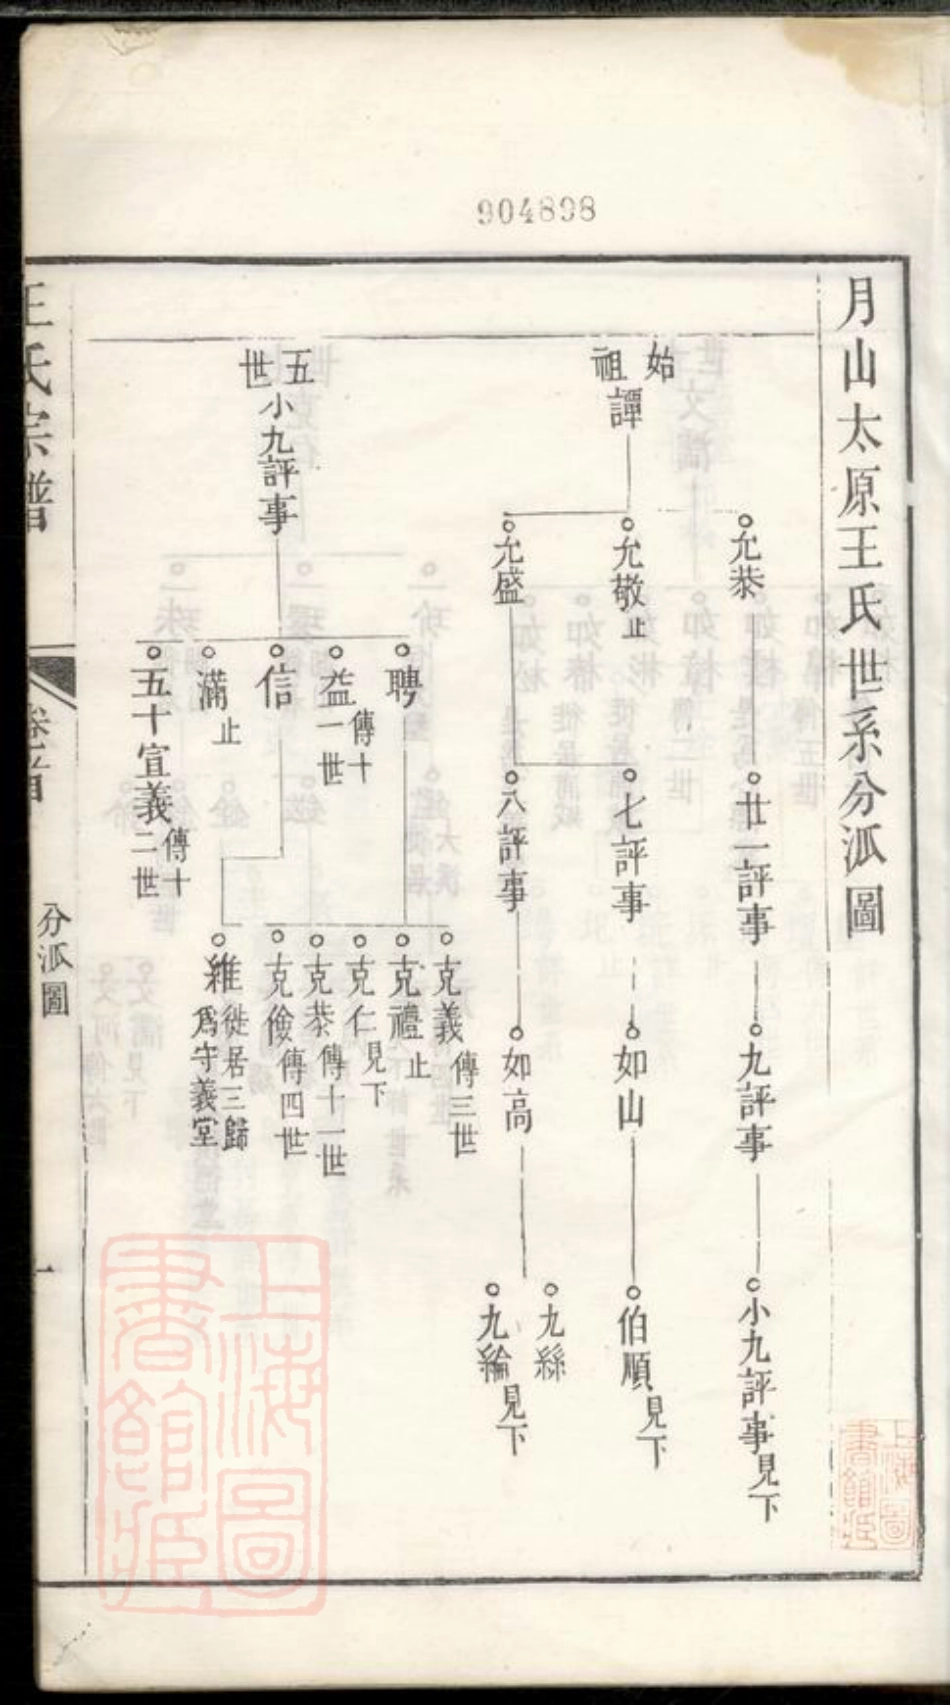 904898
月山太原王氏世系分派圖
始祖譚
允恭
允敬止
允盛
廿一評事
七評事
八評事
九評事
如山
如高
小九評事見下
伯順見下
九緜
九綸見下
五世小九評事
聘
益傳十一世
信
滿止
五十宣義傳十二世
克義傳三世
克禮止
克仁見下
克恭傳十一世
克儉傳四世
維徙居三歸為守義堂
王氏宗譜
卷首
分派圖
一
上海圖書館藏
上海圖書館藏